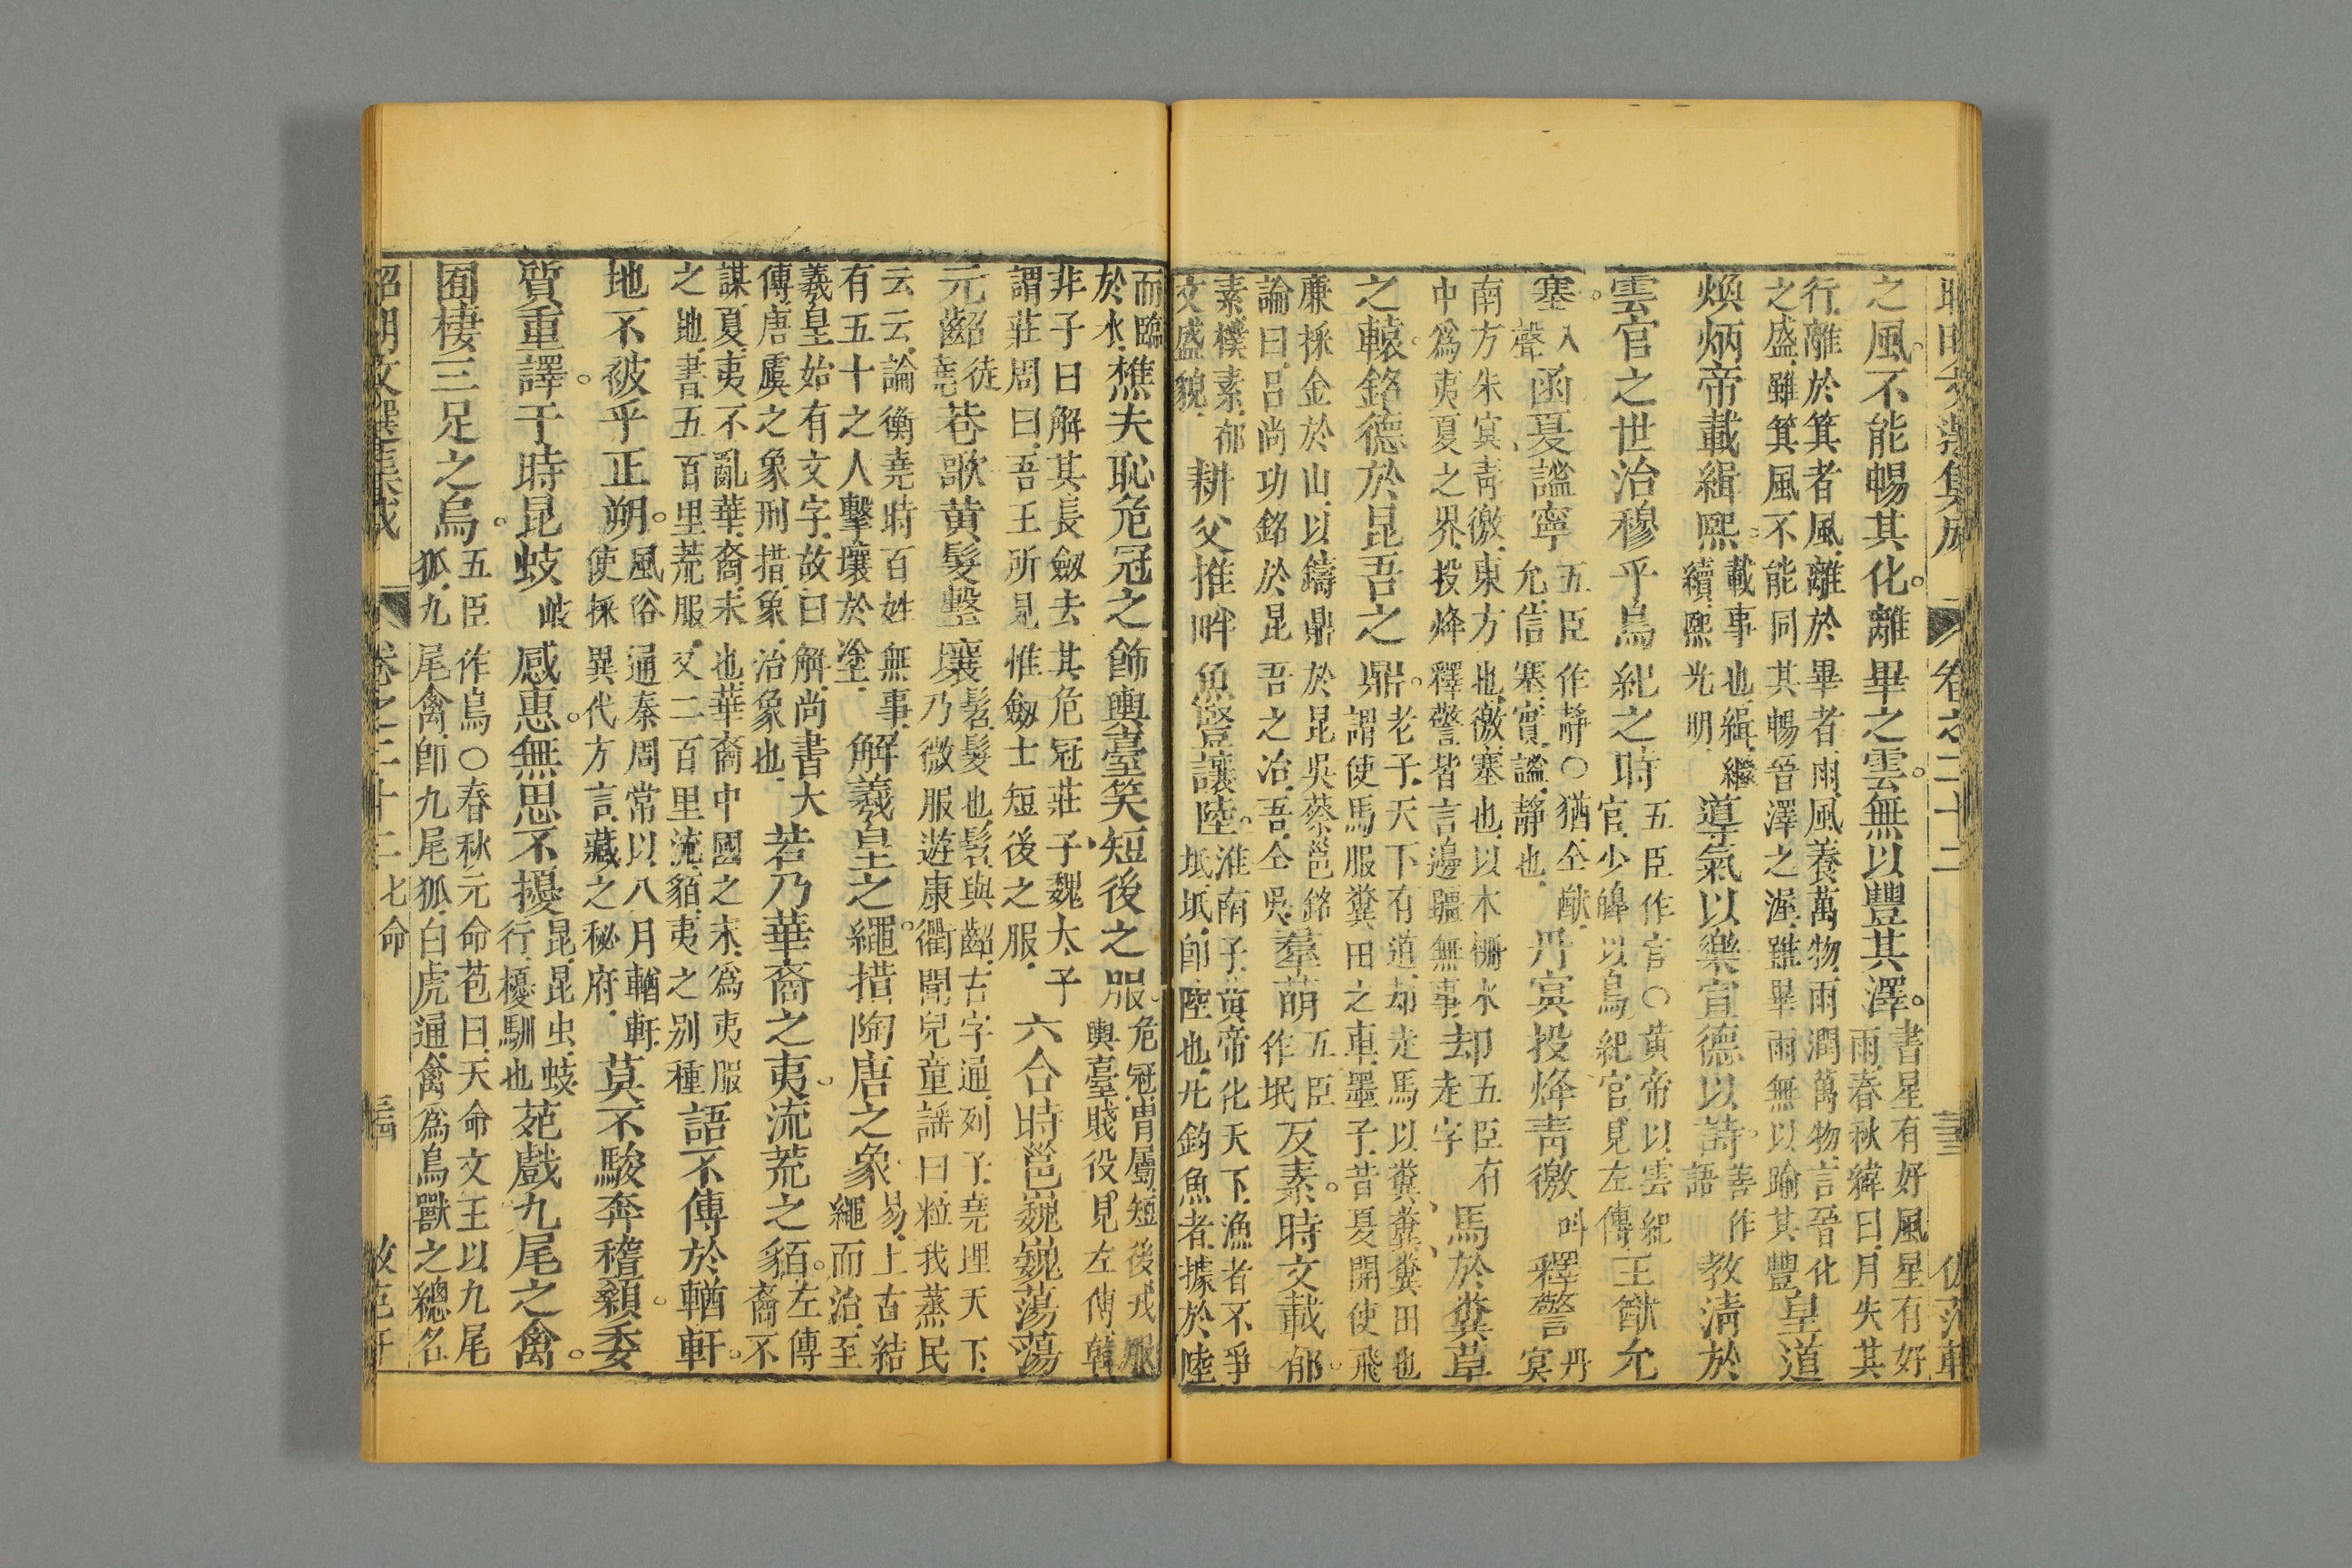 卷之二十二
之風。不能暢其化。離畢之雲。無以豐其澤。書星有好風星有好
雨春秋緯曰月失其
行離於箕者風離於畢者雨風養萬物雨潤萬物言晉化
之盛雖箕風不能同其暢晉澤之渥雖畢雨無以踰其豐皇道
煥炳帝載緝熙。載事也緝繼
續熙光明導氣以樂宣德以詩。善作
語教清於
雲官之世治穆乎鳥紀之時五臣作官〇黃帝以雲紀
官少皞以鳥紀官見左傳王猷允
塞。入
聲函夏謐寧五臣作靜〇猶仝猷
允信塞實謐靜也丹冥投烽靑徼叫釋警丹
冥
南方朱冥靑徼東方也徼塞也以木柵水
中爲夷夏之界投烽釋警皆言邊疆無事却五臣有
走字馬於糞車
之轅。銘德於昆吾之鼎。老子天下有道却走馬以糞糞糞田也
謂使馬服糞田之車墨子昔夏開使飛
廉採金於山以鑄鼎於昆吳蔡邕銘
論曰吕尚功銘於昆吾之冶吾仝吳羣萌五臣
作氓反素。時文載郁。
素樸素郁
文盛貌耕父推畔魚豎讓陸。淮南子黃帝化天下漁者不爭
坻坻卽陸也凡釣魚者據於陸
而臨
於水樵夫恥危冠之飾輿臺笑短後之服。危冠胄屬短後戎服
輿臺賤役見左傳韓
非子曰解其長劒去其危冠莊子魏太子
謂莊周曰吾王所見惟劒士短後之服六合時邕巍巍蕩蕩
元齠徒
堯巷歌黃髮擊壤髫髮也髫與齠古字通列子堯理天下
乃微服遊康衢聞兒童謠曰粒我蒸民
云云論衡堯時百姓無事
有五十之人擊壤於塗解羲皇之繩。措陶唐之象易上古結
繩而治至
羲皇始有文字故曰解尚書大
傳唐虞之象刑措象治象也若乃華裔之夷。流荒之貊。左傳
裔不
謀夏夷不亂華裔末也華裔中國之末爲夷服
之地書五百里荒服又二百里流貊夷之別種語不傳於輶軒。
地不被乎正朔。風俗通秦周常以八月輶軒
使採異代方言藏之秘府莫不駿奔稽顙。委
質重譯。于時昆蚑岐感惠。無思不擾昆昆虫蚑
行擾馴也苑戲九尾之禽。
囿棲三足之烏。五臣作烏〇春秋元命苞曰天命文王以九尾
狐九尾禽卽九尾狐白虎通禽爲鳥獸之總名
昭明文選集成 卷之二十二 七命